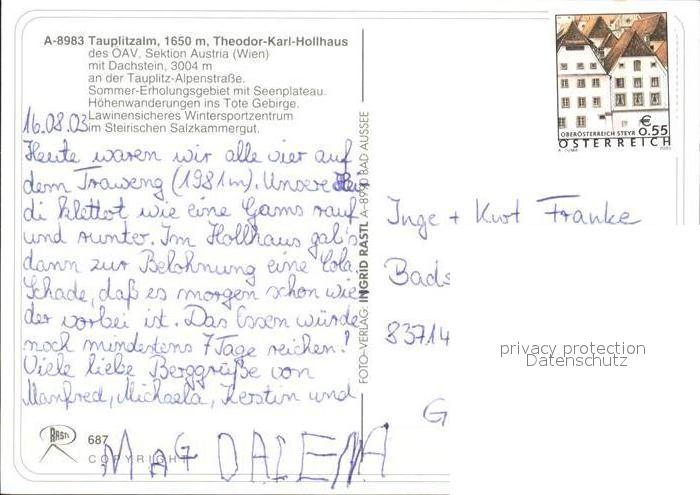 A-8983 Tauplitzalm, 1650 m, Theodor-Karl-Hollhaus
des ÖAV. Sektion Austria (Wien)
mit Dachstein, 3004 m
an der Tauplitz-Alpenstraße.
Sommer-Erholungsgebiet mit Seenplateau.
Höhenwanderungen ins Tote Gebirge.
Lawinensicheres Wintersportzentrum
im Steirischen Salzkammergut.
16.08.03
Heute waren wir alle vier auf
dem Traweng (1981m). Unsere
di klettert wie eine Gams rauf
und runter. Im Hollhaus gab's
dann zur Belohnung eine Cola.
Schade, daß es morgen schon wie
der vorbei ist. Das Essen würde
noch mindestens 7 Tage reichen!
Viele liebe Berggrüße von
Manfred, Michaela, Kerstin und
MAGDALENA
RASTL
687
COPYRIGHT
FOTO-VERLAG: INGRID RASTL A-8990 BAD AUSSEE
€
0.55
OBERÖSTERREICH STEYR
ÖSTERREICH
Inge + Kurt Franke
Bads
83714
G
privacy protection
Datenschutz